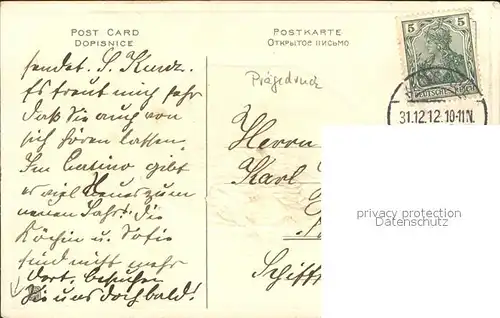 POST CARD
DOPISNICE
POSTKARTE
ОТКРЫТОЕ ПИСЬМО
5 5
DEUTSCHES REICH
31.12.12.10-11N.
Prägedruck
sendet. S. Kurz.
Es freut mich sehr
daß Sie auch von
sich hören lassen.
Im Casino gibt
es viel Neues zum
neuen Jahr! Die
Köchin u. Sofie
sind nicht mehr
dort. besuchen
Sie uns doch bald!
Herrn
Karl
Schiff
privacy protection
Datenschutz